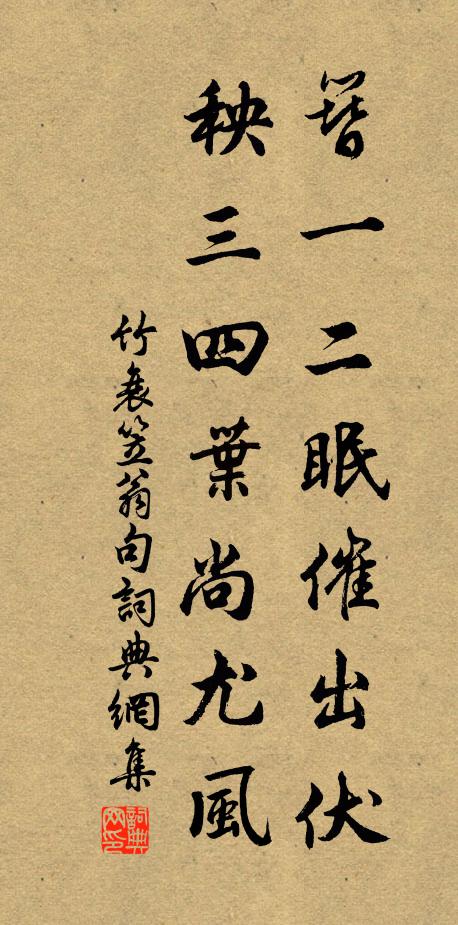 簪一二眠催出伏
秧三四葉尚尤風
竹衰笠翁句詞典網集
詞典
网印